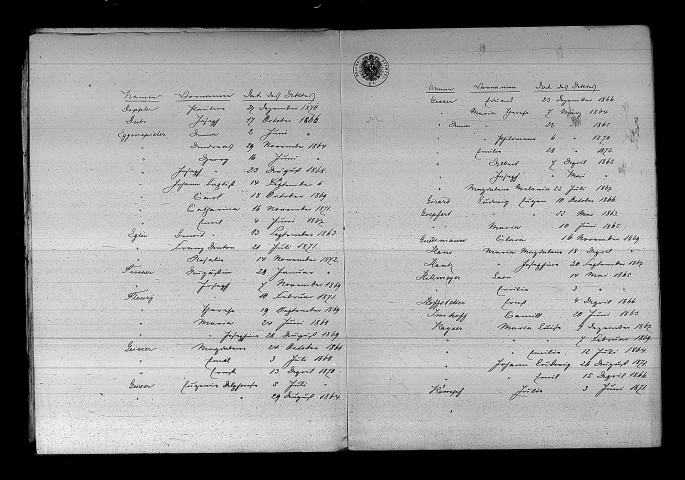 Namen Vornamen Dat. des Aktes
Doppler Pauline 29 Dezember 1870
Dubs Joseph 17 October 1866
Eggenspieler Anna 2 Juni "
" Andreas 29 November 1864
" Georg 16 Juni "
" Joseph 23 August 1868
" Johann Baptist 14 September 6
" Carl 18 October 1869
" Catharina 16 November 1871
" Emil 4 Juni 1872
Eglin Benoit 13 September 1863
" Franz Anton 21 Juli 1871
" Rosalie 14 November 1872
Augustin 28 Januar "
" Joseph 7 November 1869
Fleury " 10 Februar 1871
" Therese 19 September 1869
" Maria 24 Juni 1864
" Josephine 28 August 1869
Geiser Magdalena 24 October 1866
" Emil 3 Juli 1868
" Ernst 13 April 1870
Gesser Eugenie 8 Juli "
" " 29 August 1864
Namen Vornamen Dat. des Aktes
Gesser Eduard 23 Dezember 1866
" Maria Therese 7 März 1864
" Anna " 23 " 1865
" Philomene 6 " 1870
" Emilie 28 " 1872
" Albert 7 April 1863
" Joseph " Mai "
" Magdalena Melanie 22 Juli 1867
Girard Ludwig Eugen 10 October 1866
Goepfert " " 22 Mai 1862
" Maria 10 Juni 1865
Gutzmann Clara 16 November 1869
Hans Maria Magdalena 18 April "
Hantz " Josephine 30 September 1869
Leo 14 Mai 1865
" Emilie 3 " "
Hoffstetter Ernst 4 April 1866
Imhoff Camill 20 Juni 1863
Kayser Maria Luise 9 Dezember 1867
" " " 7 Februar 1869
" Emilie 12 Juli 1864
" Johann Ludwig 26 August 1871
" Emil 15 April 1866
Kempf Julie 3 Juni 1871